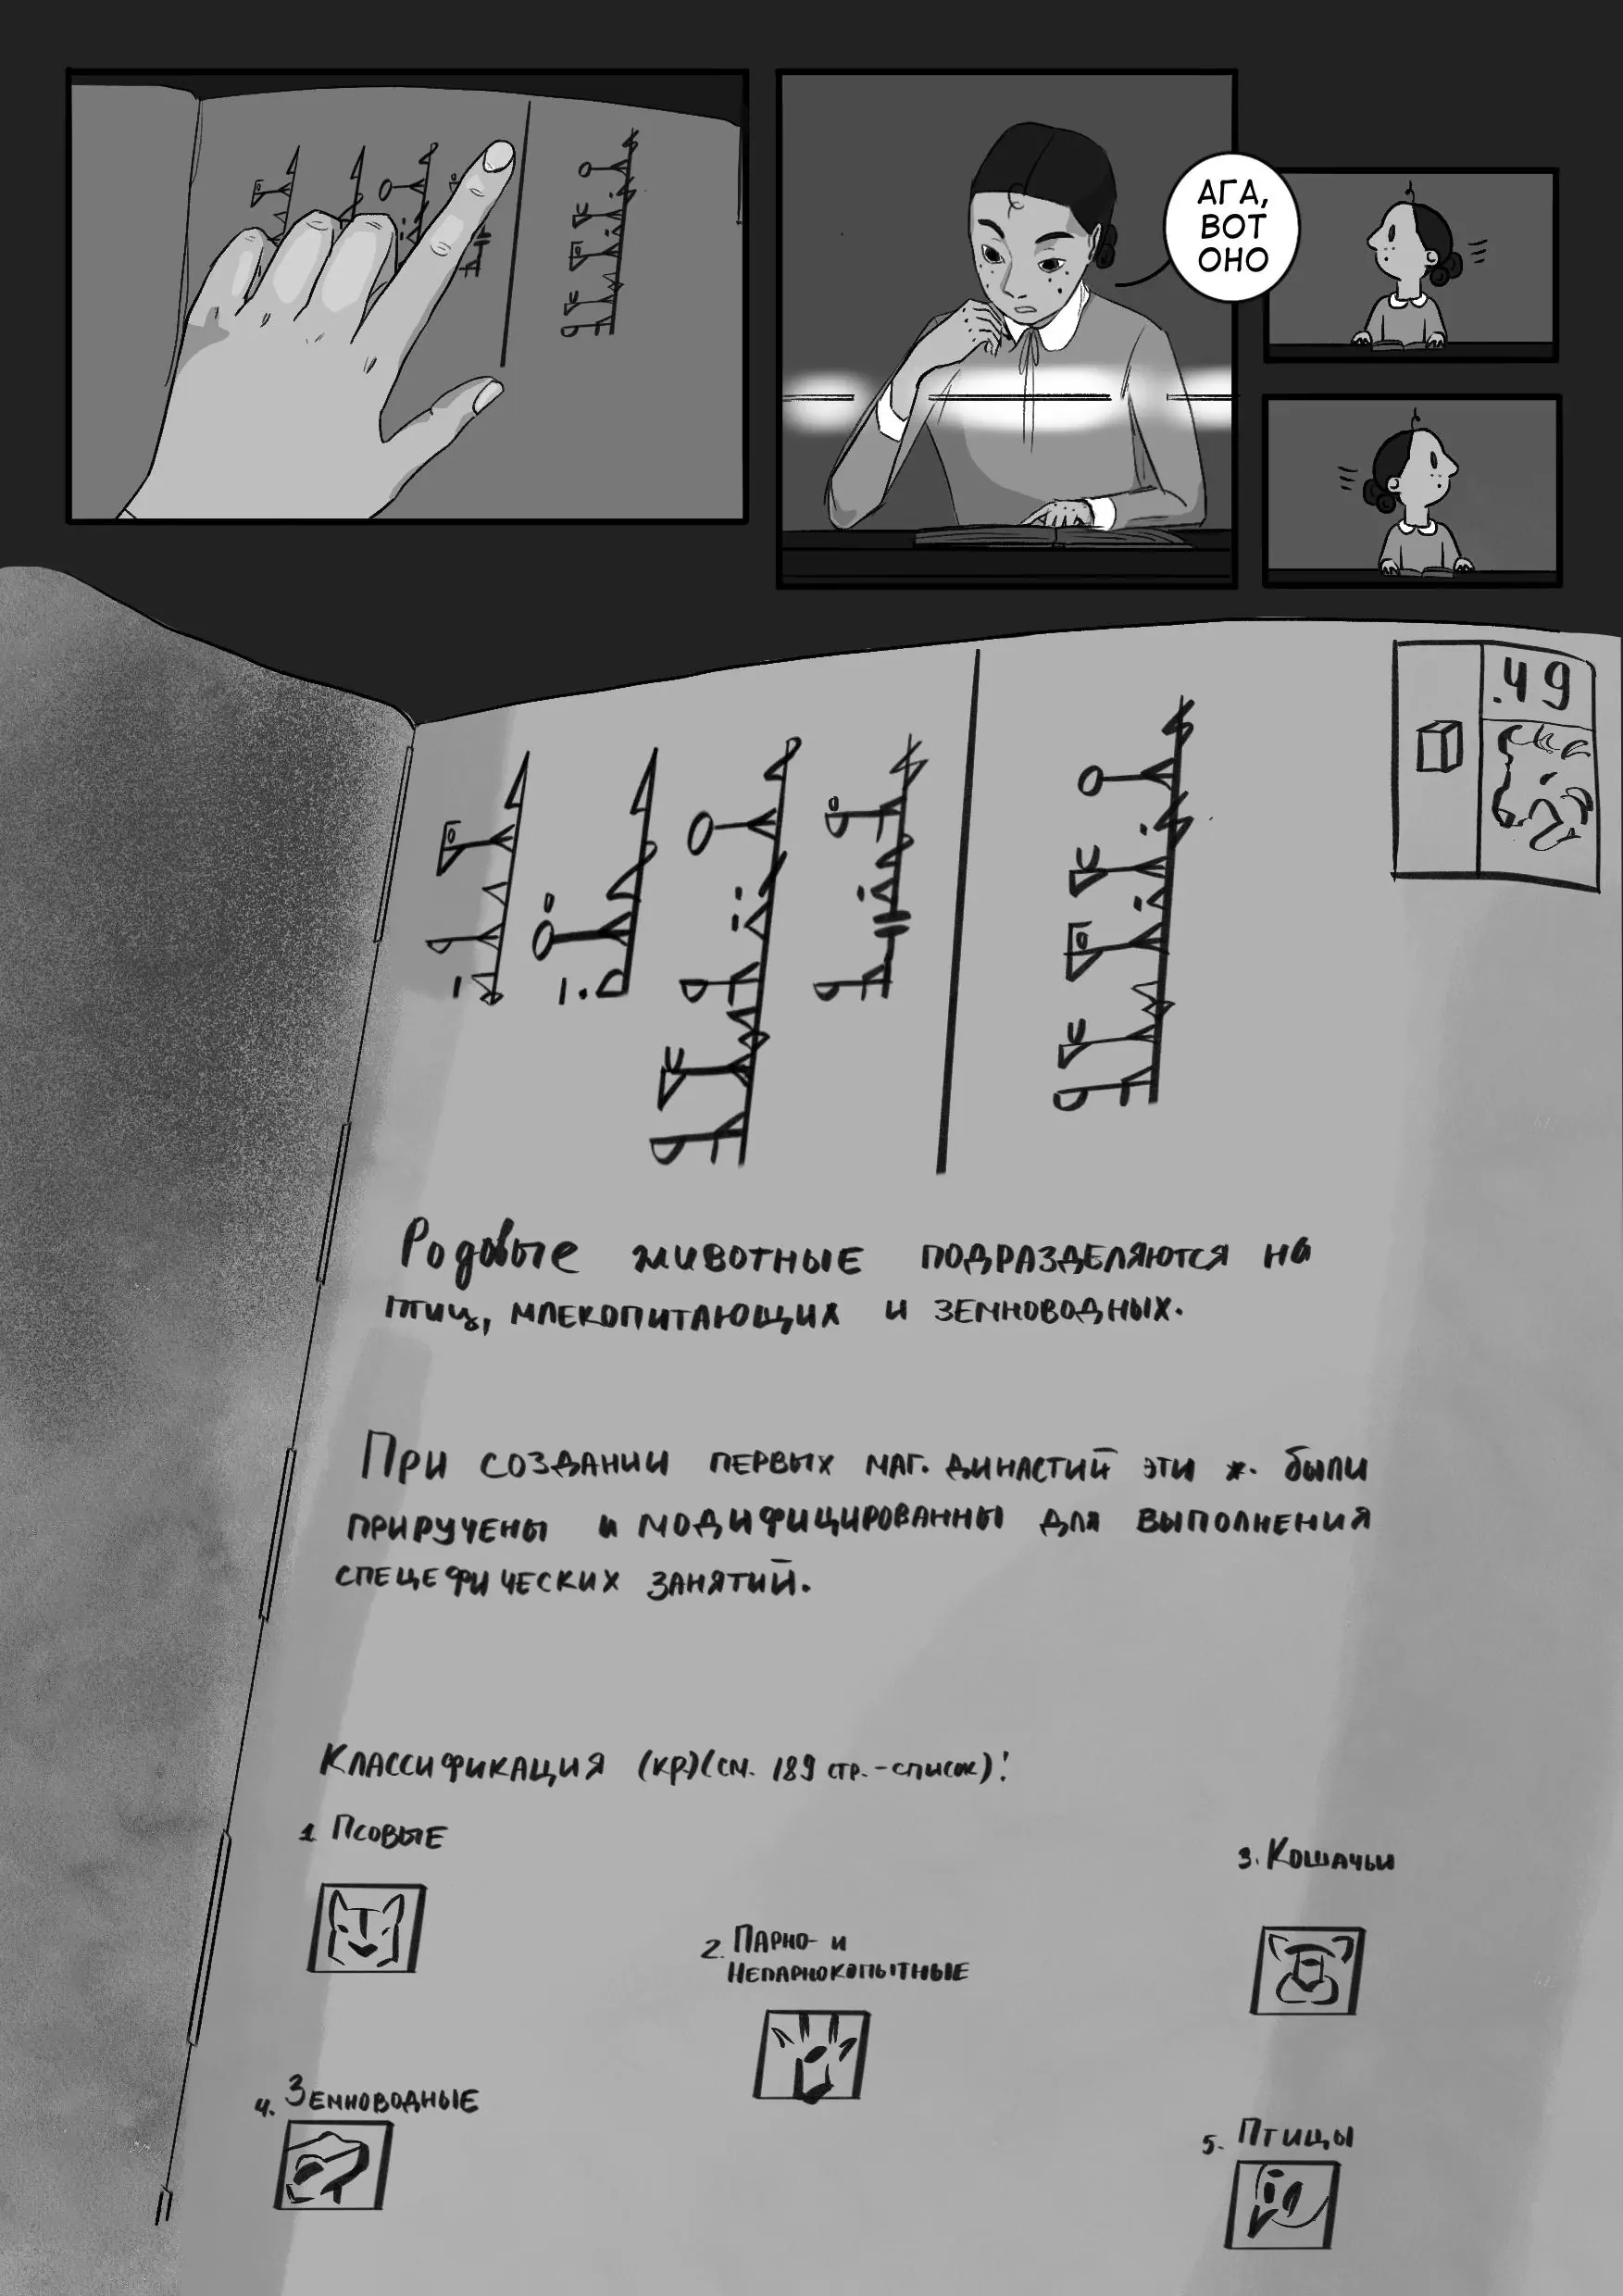 АГА,
ВОТ
ОНО
.49
Родовые животные подразделяются на
птиц, млекопитающих и земноводных.
При создании первых маг. династий эти ж. были
приручены и модифицированны для выполнения
спецефических занятий.
Классификация (кр)(см. 189 стр. - список):
1. Псовые
2. Парно- и
непарнокопытные
3. Кошачьи
4. Земноводные
5. Птицы